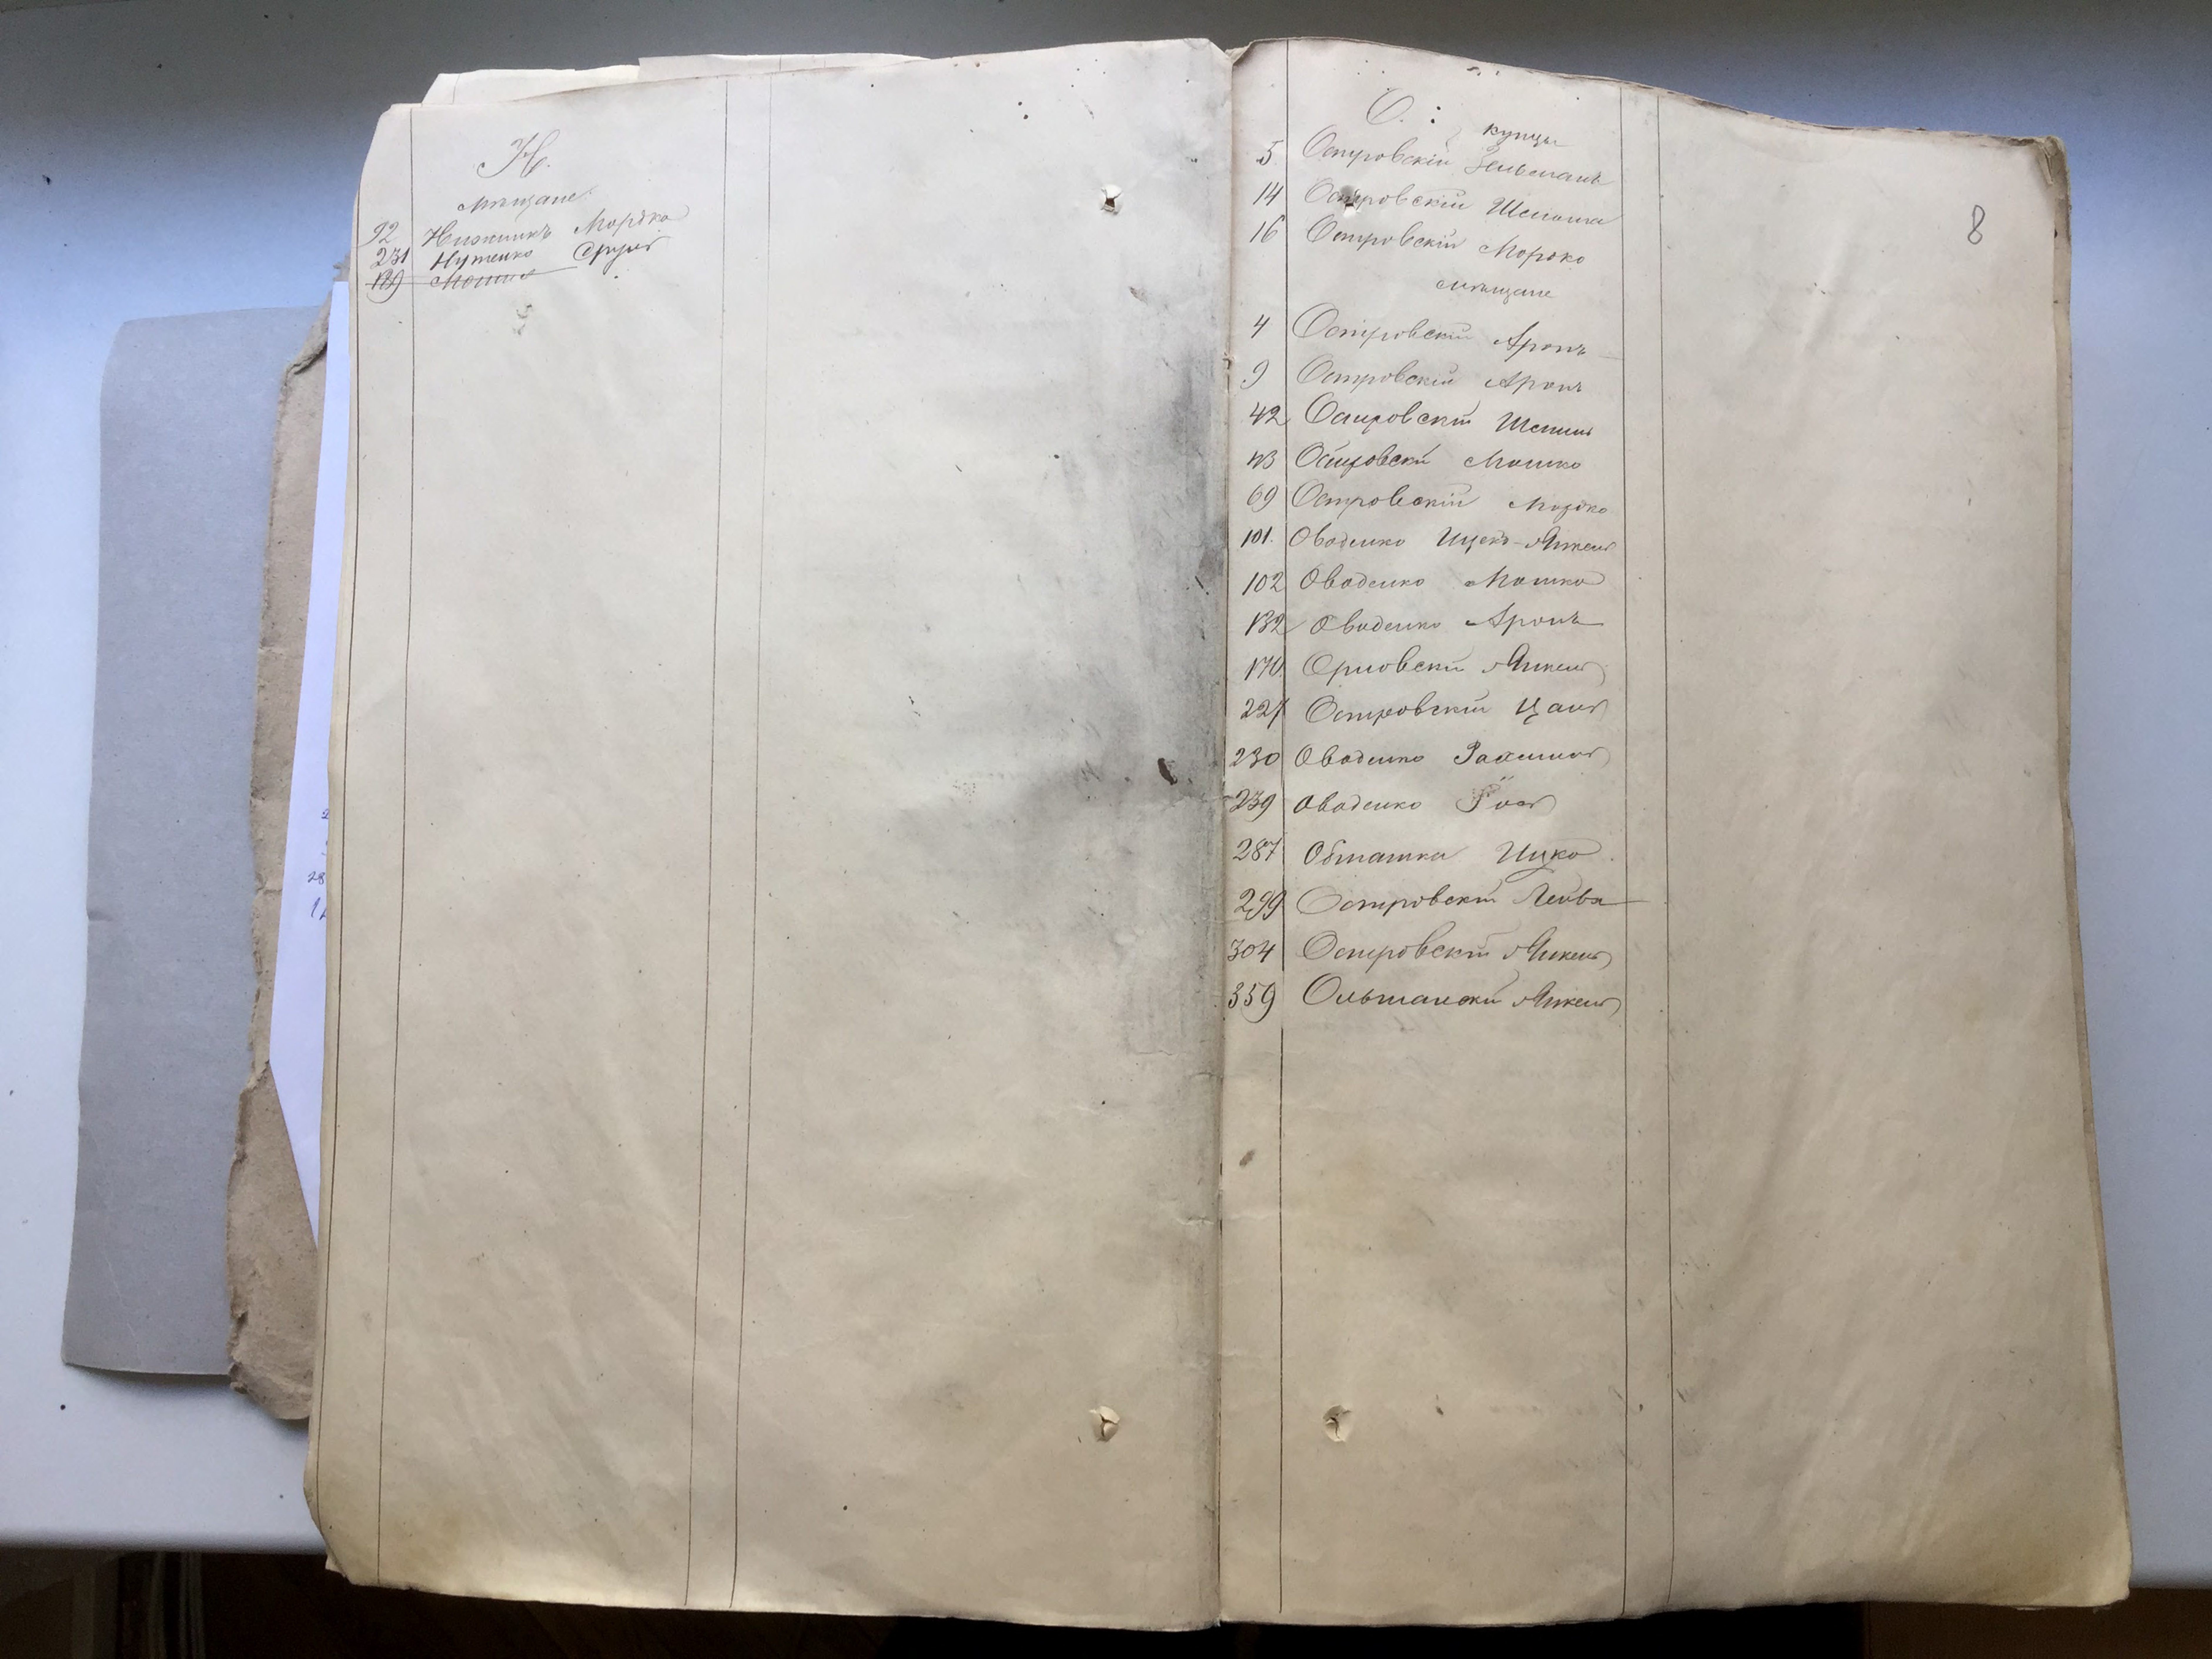 Н.
мѣщане
92 Нижникъ Мордко
231 Нутенко Сруль
189 Мошко
О.
купцы
5 Островскій Зельманъ
14 Островскій Шлиома
16 Островскій Мордко
мѣщане
4 Островскій Аронъ
9 Островскій Аронъ
42 Островскій Шмиль
43 Островскій Мошко
69 Островскій Мордко
101. Оваденко Ицско-Янкель
102 Оваденко Мошко
132 Оваденко Аронъ
170. Орловскій Янкель
227 Островскій Цаль
230 Оваденко Захиль
239 Оваденко
287 Ицко
299 Островскій Лейба
304 Островскій Янкель
359 Ольшанскій Янкель
8